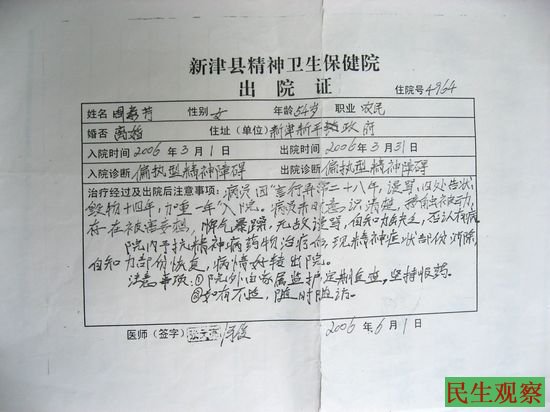 新津县精神卫生保健院
出院证
住院号4964
姓名 性别 女 年龄 54岁 职业 农民
婚否 离婚 住址(单位)新津新平镇政府
入院时间 2006年3月1日 出院时间 2006年3月31日
入院诊断 偏执型精神障碍 出院诊断 偏执型精神障碍
治疗经过及出院后注意事项:病员因"言行异常二十八年,漫骂、四处告状,
毁物十四年,加重一年"入院。病员来时意识清楚,接触被动,
存在被害妄想,脾气暴躁,无故漫骂,自知力缺失,否认有病,
院内予抗精神病药物治疗后,现精神症状部份消除,
自知力部份恢复,病情好转出院。
注意事项:①院外由家属监护,定期复查,坚持服药。
②如有不适,随时随访。
医师(签字)
2006年6月1日
民生观察